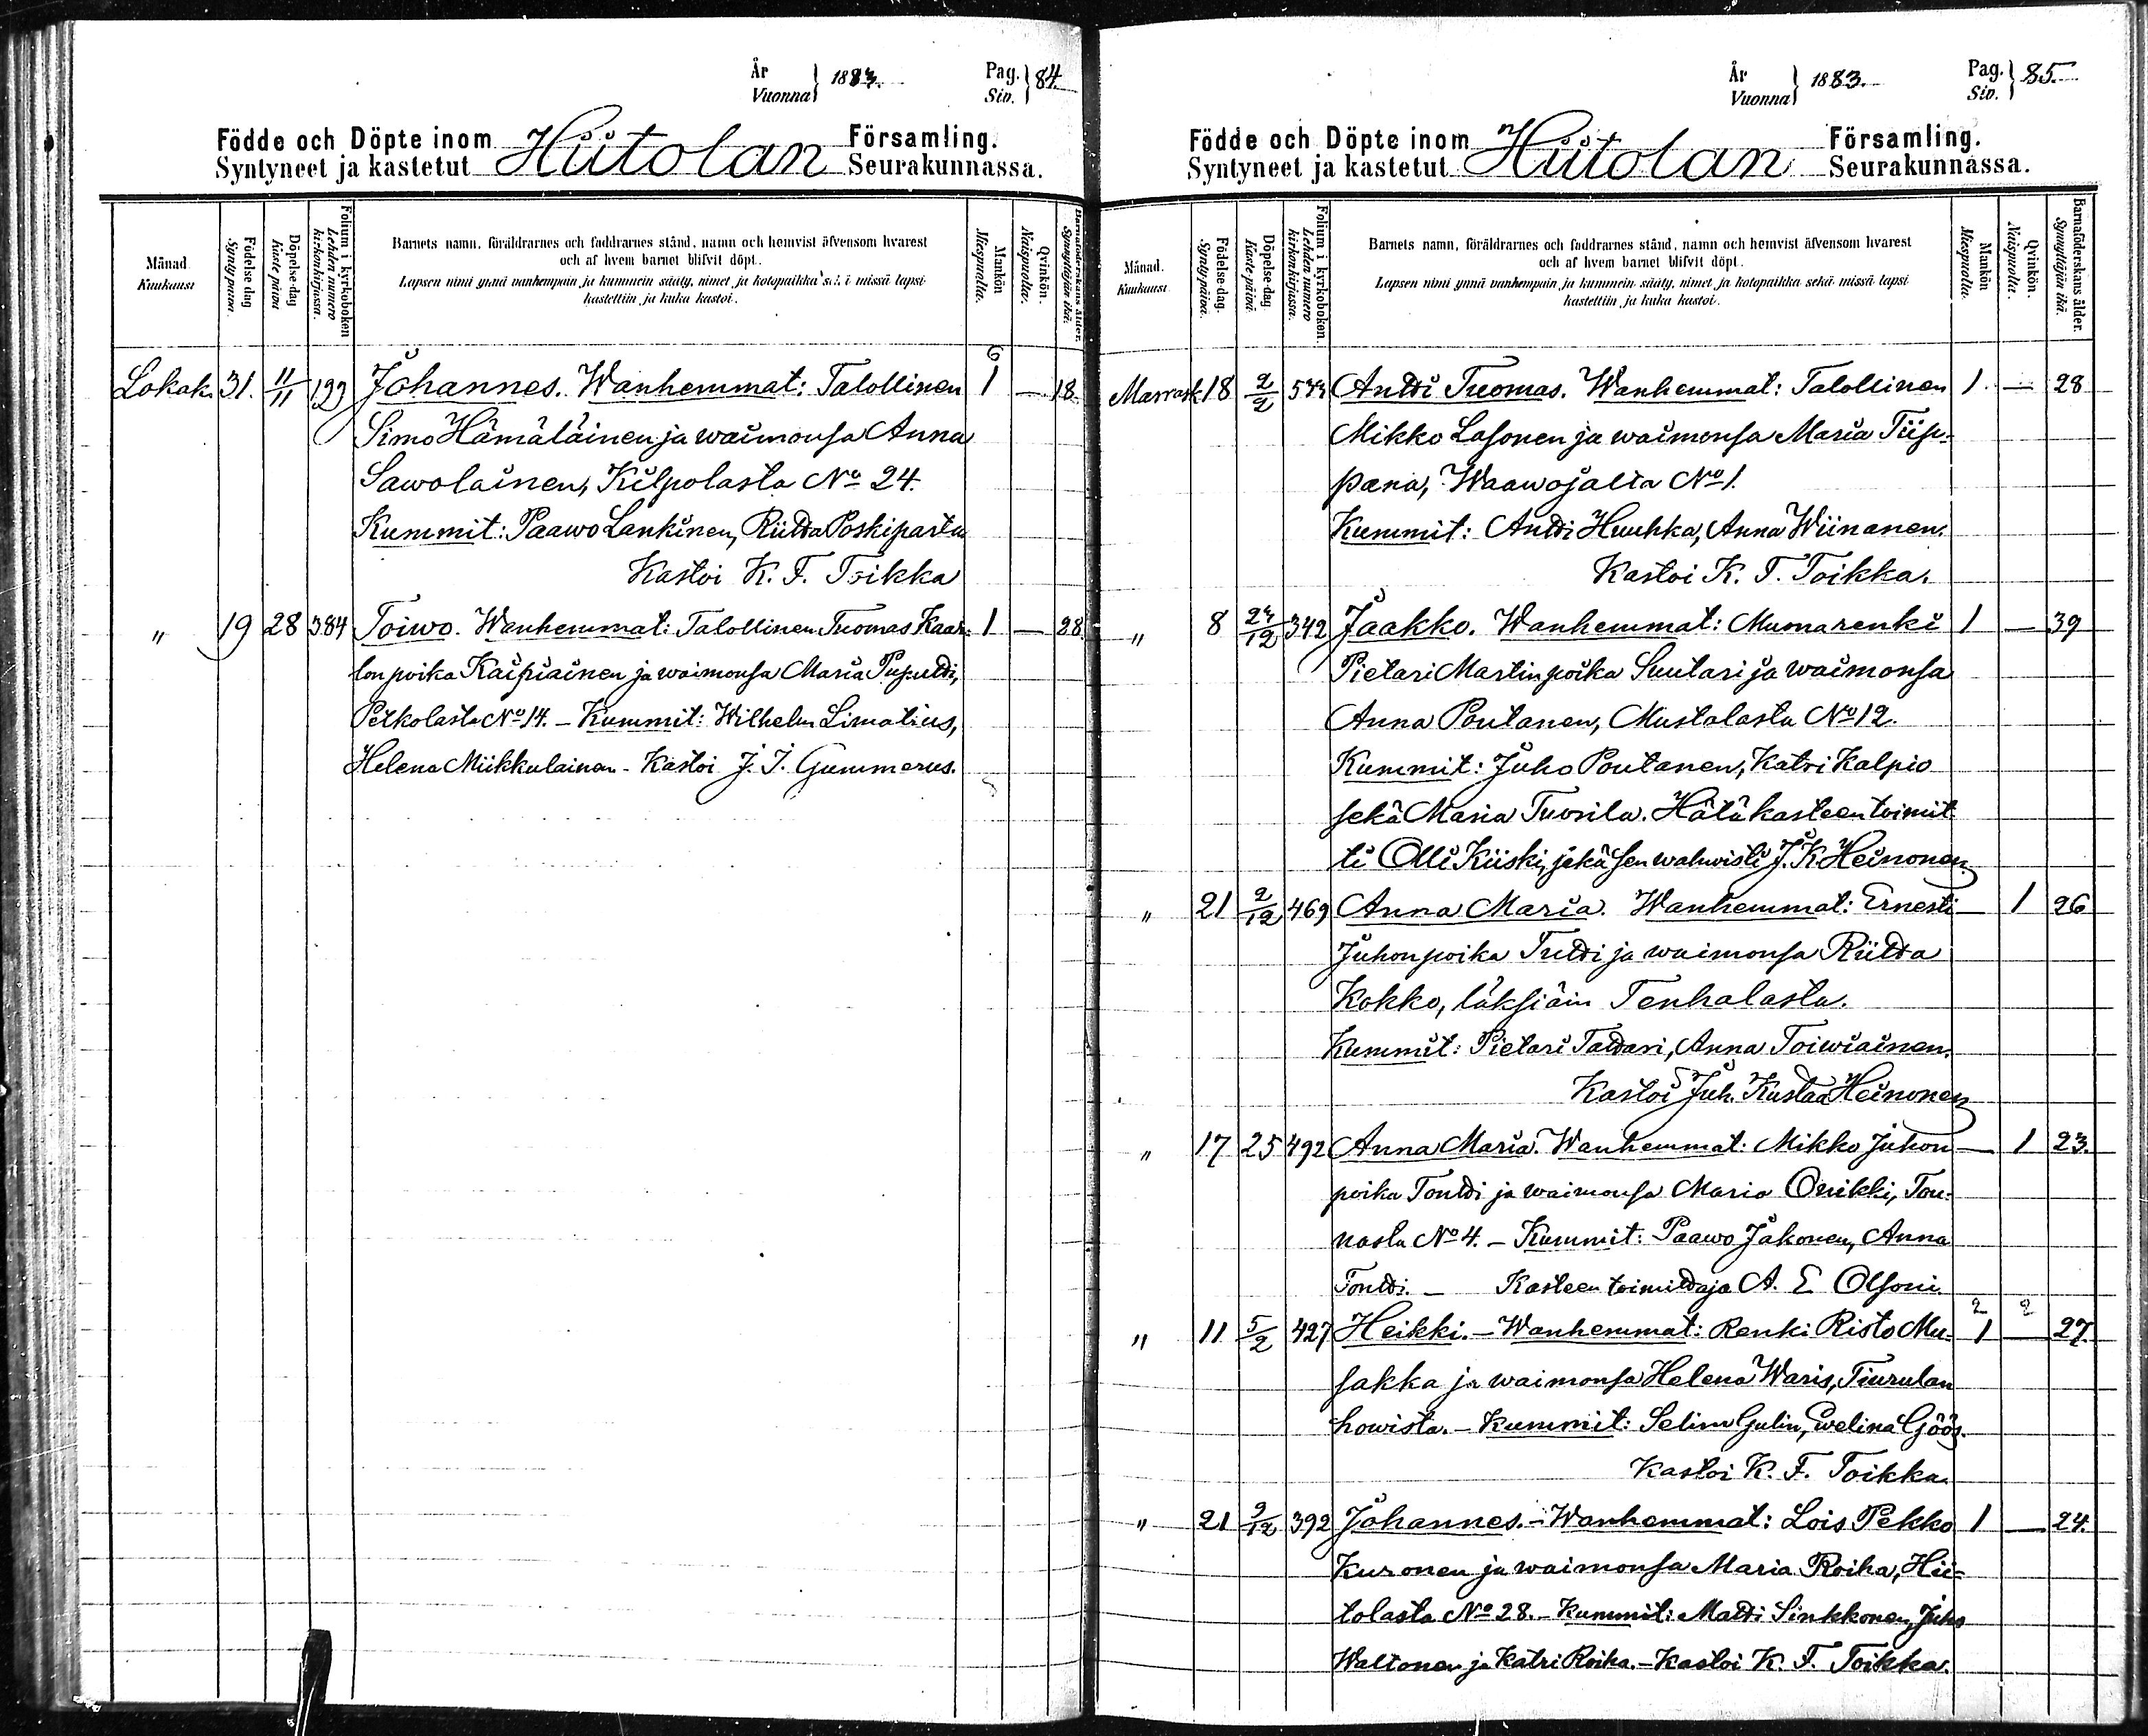 År Vuonna } 1883. Pag. Siv. } 84.
Födde och Döpte inom Hiitolan Församling.
Syntyneet ja kastetut Seurakunnassa.
Månad. Kuukausi
Födelse dag Syntypäivä.
Döpelse-dag Kaste-päivä
Folium i kyrkoboken Lehden numero kirkonkirjassa.
Barnets namn, föräldrarnes och faddrarnes stånd, namn och hemvist äfvensom hvarest
och af hvem barnet blifvit döpt.
Lapsen nimi ynnä vanhempain ja kummein sääty, nimet ja kotopaikka sekä missä lapsi
kastettiin ja kuka kastoi.
Mankön Miespuolia.
Qvinkön. Naispuolia.
Barnaföderskans ålder. Synnyttäjän ikä.
6
Lokak. 31. 11/11 199 Johannes. Wanhemmat: Talollinen 1 — 18.
Simo Hämäläinen ja waimonsa Anna
Sawolainen, Kilpolasta No 24.
Kummit: Paawo Lankinen, Riitta Poskiparta
Kastoi K. F. Toikka
" 19 28 384 Toiwo. Wanhemmat: Talollinen Tuomas Kaar- 1 — 28
lonpoika Kaipiainen ja waimonsa Maria Puputti,
Petkolasta No 14. – Kummit: Wilhelm Limatius,
Helena Miikkulainen – Kastoi J. I. Gummerus.
År Vuonna } 1883. Pag. Siv. } 85.
Födde och Döpte inom Hiitolan Församling.
Syntyneet ja kastetut Seurakunnassa.
Månad. Kuukausi
Födelse-dag. Syntypäivä.
Döpelse-dag. Kaste-päivä.
Folium i kyrkoboken. Lehden numero kirkonkirjassa.
Barnets namn, föräldrarnes och faddrarnes stånd, namn och hemvist äfvensom hvarest
och af hvem barnet blifvit döpt.
Lapsen nimi ynnä vanhempain ja kummein sääty, nimet ja kotopaikka sekä missä lapsi
kastettiin ja kuka kastoi.
Mankön Miespuolia.
Qvinkön. Naispuolia.
Barnaföderskans ålder. Synnyttäjän ikä.
Marrask. 18 2/2 Antti Tuomas. Wanhemmat: Talollinen 1. — 28
Mikko Lasonen ja waimonsa Maria Tiip-
pana, Waawojalta No 1.
Kummit: Antti Huuhka, Anna Wiinanen.
Kastoi K. F. Toikka.
" 8 24/12 342 Jaakko. Wanhemmat: Muonarenki 1 — 39
Pietari Martinpoika Suutari ja waimonsa
Anna Poutanen, Mustolasta No 12.
Kummit: Juho Poutanen, Katri Kalpio
sekä Maria Tuosila. Hätäkasteen toimit-
ti Olli Kiiski, jekä sen wahwisti J. K. Heinonen
" 21 2/12 469 Anna Maria. Wanhemmat: Ernesti — 1 26
Juhonpoika Tutti ja waimonsa Riitta
Kokko, läksiäin Tenhalasta.
Kummit: Pietari Tattari, Anna Toiwiainen.
Kastoi Juh. Kustaa Heinonen
" 17 25 492 Anna Maria. Wanhemmat: Mikko Juhon — 1 23.
poika Tontti ja waimonsa Maria Onikki, Tou-
nasta No 4. – Kummit: Paawo Jakonen, Anna
Tontti. – Kasteen toimittaja A. E Olsoni.
2 2
" 11 5/2 427 Heikki. – Wanhemmat: Renki Risto Mu- 1 — 27.
sakka ja waimonsa Helena Waris, Tiurulan
howista. – Kummit: Selim Gulin, Ewelina Göös.
Kastoi K. F. Toikka.
" 21 9/12 392 Johannes. – Wanhemmat: Lois Pekko 1 — 24.
Kuronen ja waimonsa Maria Roiha, Hii-
tolasta No 28. – Kummit: Matti Sinkkonen, Juho
Waltonen ja Katri Roiha. – Kastoi K. F. Toikka.